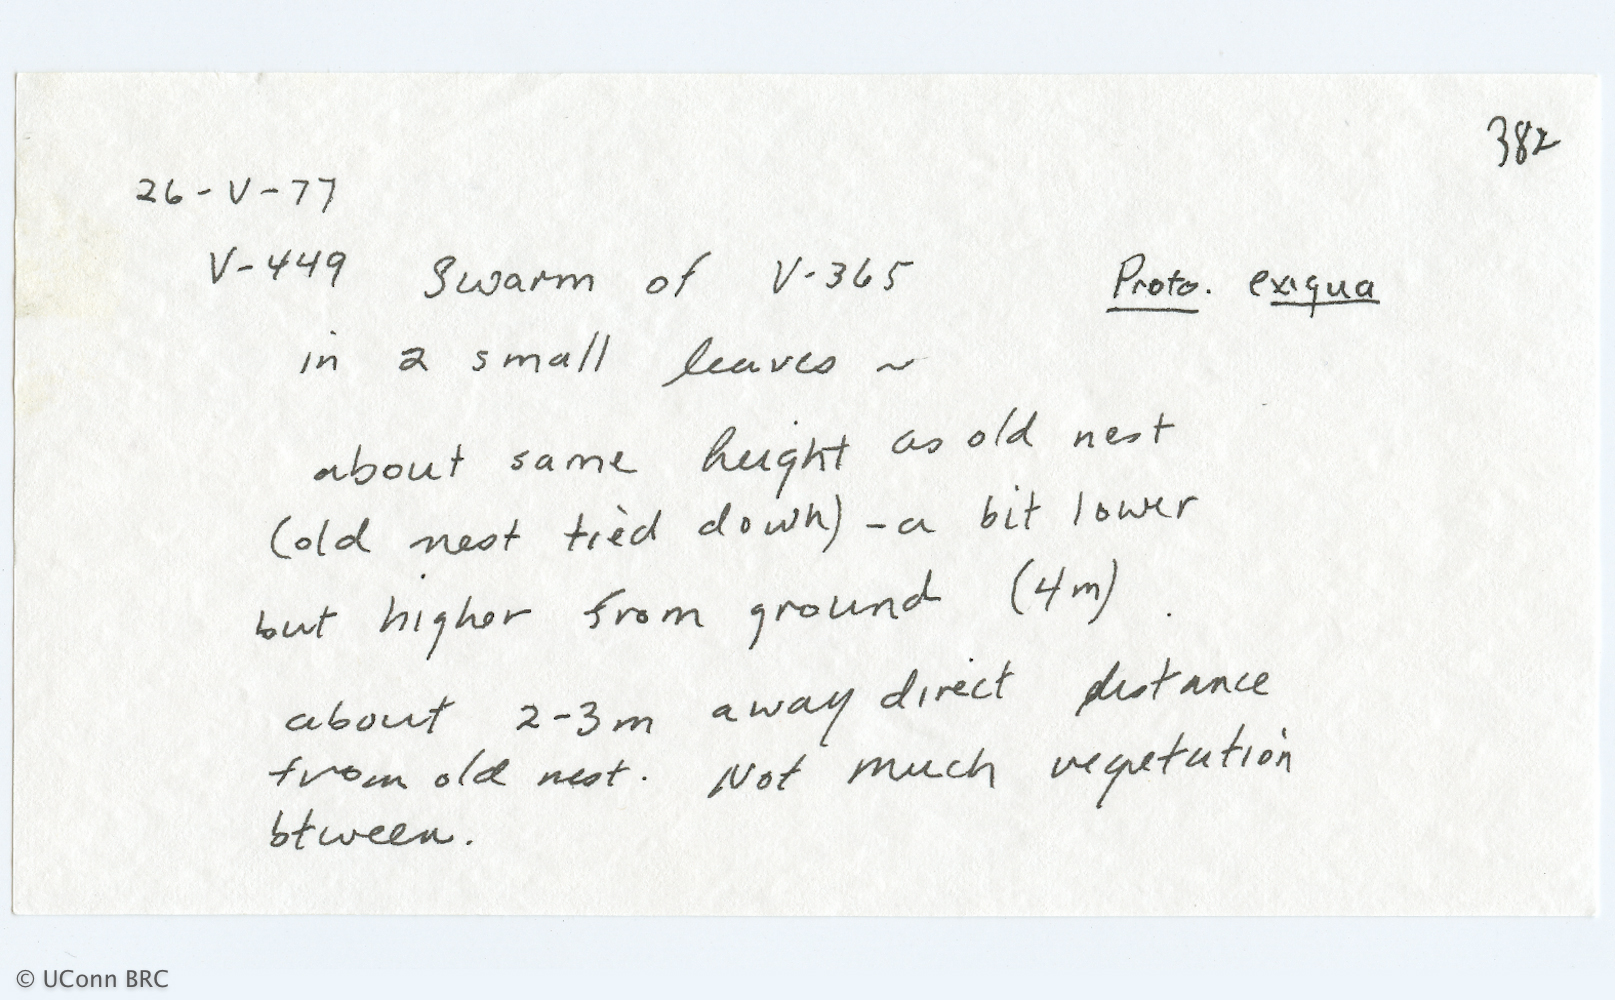 382
26-V-77
V-449 Swarm of V-365 Proto. exigua
in 2 small leaves ~
about same height as old nest
(old nest tied down) - a bit lower
but higher from ground (4m).
about 2-3m away direct distance
from old nest. Not much vegetation
btween.
© UConn BRC